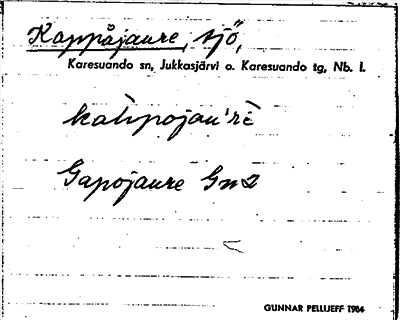 Kappåjaure, sjö,
Karesuando sn, Jukkasjärvi o. Karesuando tg, Nb. l.
Gapojaure Gn2
GUNNAR PELLIJEFF 1964